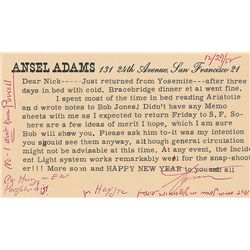 ANSEL ADAMS 131 24th Avenue, San Francisco 21
12/29/55
Dear Nick-----Just returned from Yosemite--after three
days in bed with cold, Bracebridge dinner et al went fine.
I spent most of the time in bed reading Aristotle
and wrote notes to Bob Jones! Didn't have any Memo
sheets with me so I expected to return Friday to S,F, So-
here are a few ideas of merit I hope, which I am sure
Bob will show you, Please ask him-it was my intention
you should see them anyway, although general circulation
might not be advisable at this time. At any event, the
Incident Light system works remarkably well for the snap-shoot-
er!!! More soon and HAPPY NEW YEAR to you and all